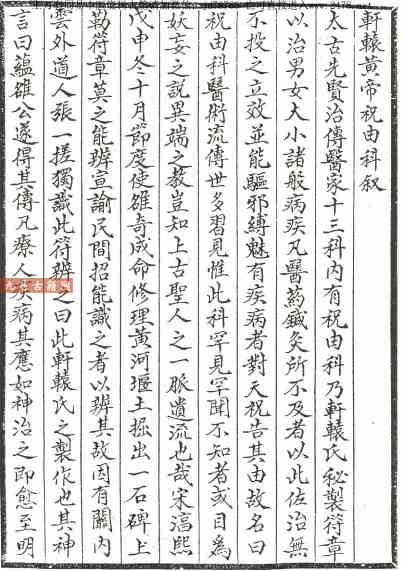 軒轅黃帝祝由科叙
太古先賢治傳醫家十三科内有祝由科乃軒轅氏秘製符章
以治男女大小諸般病疾凡醫藥鍼灸所不及者以此佐治無
不投之立效並能驅邪縛魅有疾病者對天祝告其由故名曰
祝由科醫術流傳世多習見惟此科罕見罕聞不知者或目為
妖妄之説異端之教豈知上古聖人之一脈遺流也哉宋淳熙
戊申冬十月節度使雒奇成命修理黃河堰土掘出一石碑上
勒符章莫之能辨宣諭民間招能識之者以辨其故因有關内
雲外道人張一搓獨識此符辨之曰此軒轅氏之製作也其神
言曰蘊雒公遂得其傳凡療人疾病其應如神治之即愈至明